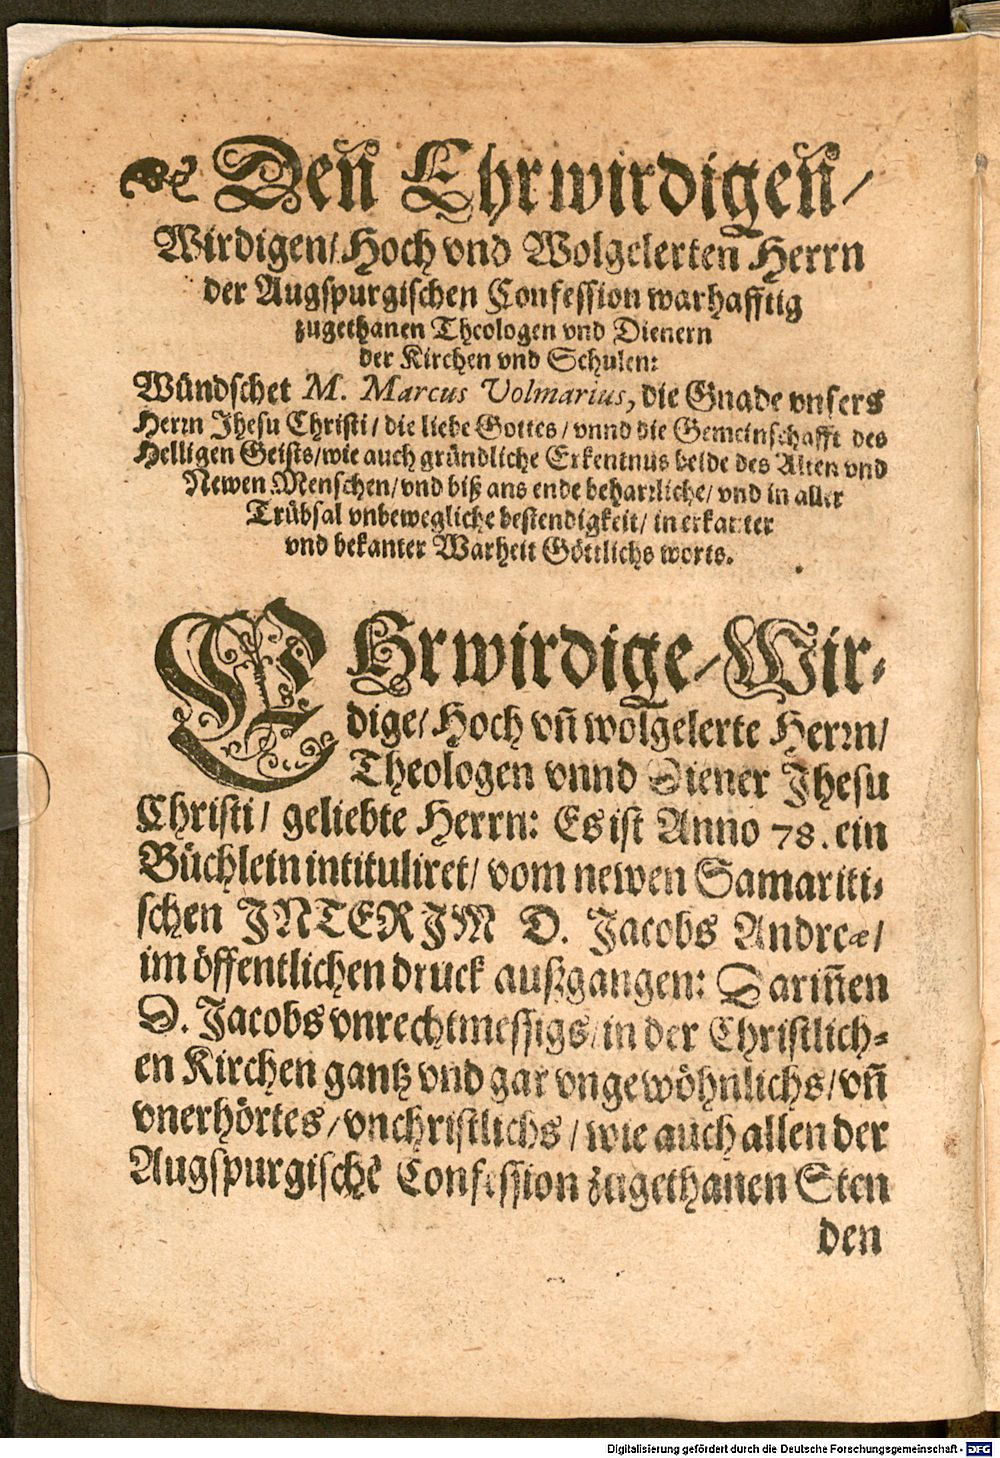 Den̄ Ehrwirdigen̄/
Wirdigen/ Hoch vnd Wolgelerten̄ Herrn
der Augspurgischen Confession warhafftig
zugethanen Theologen vnd Dienern
der Kirchen vnd Schulen:
Wündschet M. Marcus Volmarius, die Gnade vnsers
Herrn Jhesu Christi/ die liebe Gottes/ vnnd die Gemeinschafft des
Heiligen Geists/ wie auch gründliche Erkentnus beide des Alten vnd
Newen Menschen/ vnd biß ans ende beharrliche/ vnd in aller
Trübsal vnbewegliche bestendigkeit/ in erkanter
vnd bekanter Warheit Göttlichs worts.
EHrwirdige/ Wir-
dige/ Hoch vn̄ wolgelerte Herrn/
Theologen vnnd Diener Jhesu
Christi/ geliebte Herrn: Es ist Anno 78. ein
Büchlein intituliret/ vom newen Samariti-
schen INTERIM D. Jacobs Andreæ/
im öffentlichen druck außgangen: Darin̄en
D. Jacobs vnrechtmessigs/ in der Christlich-
en Kirchen gantz vnd gar vngewöhnlichs/ vn̄
vnerhörtes/ vnchristlichs/ wie auch allen der
Augspurgischē Confession zugethanen Sten
den
Digitalisierung gefördert durch die Deutsche Forschungsgemeinschaft - DFG